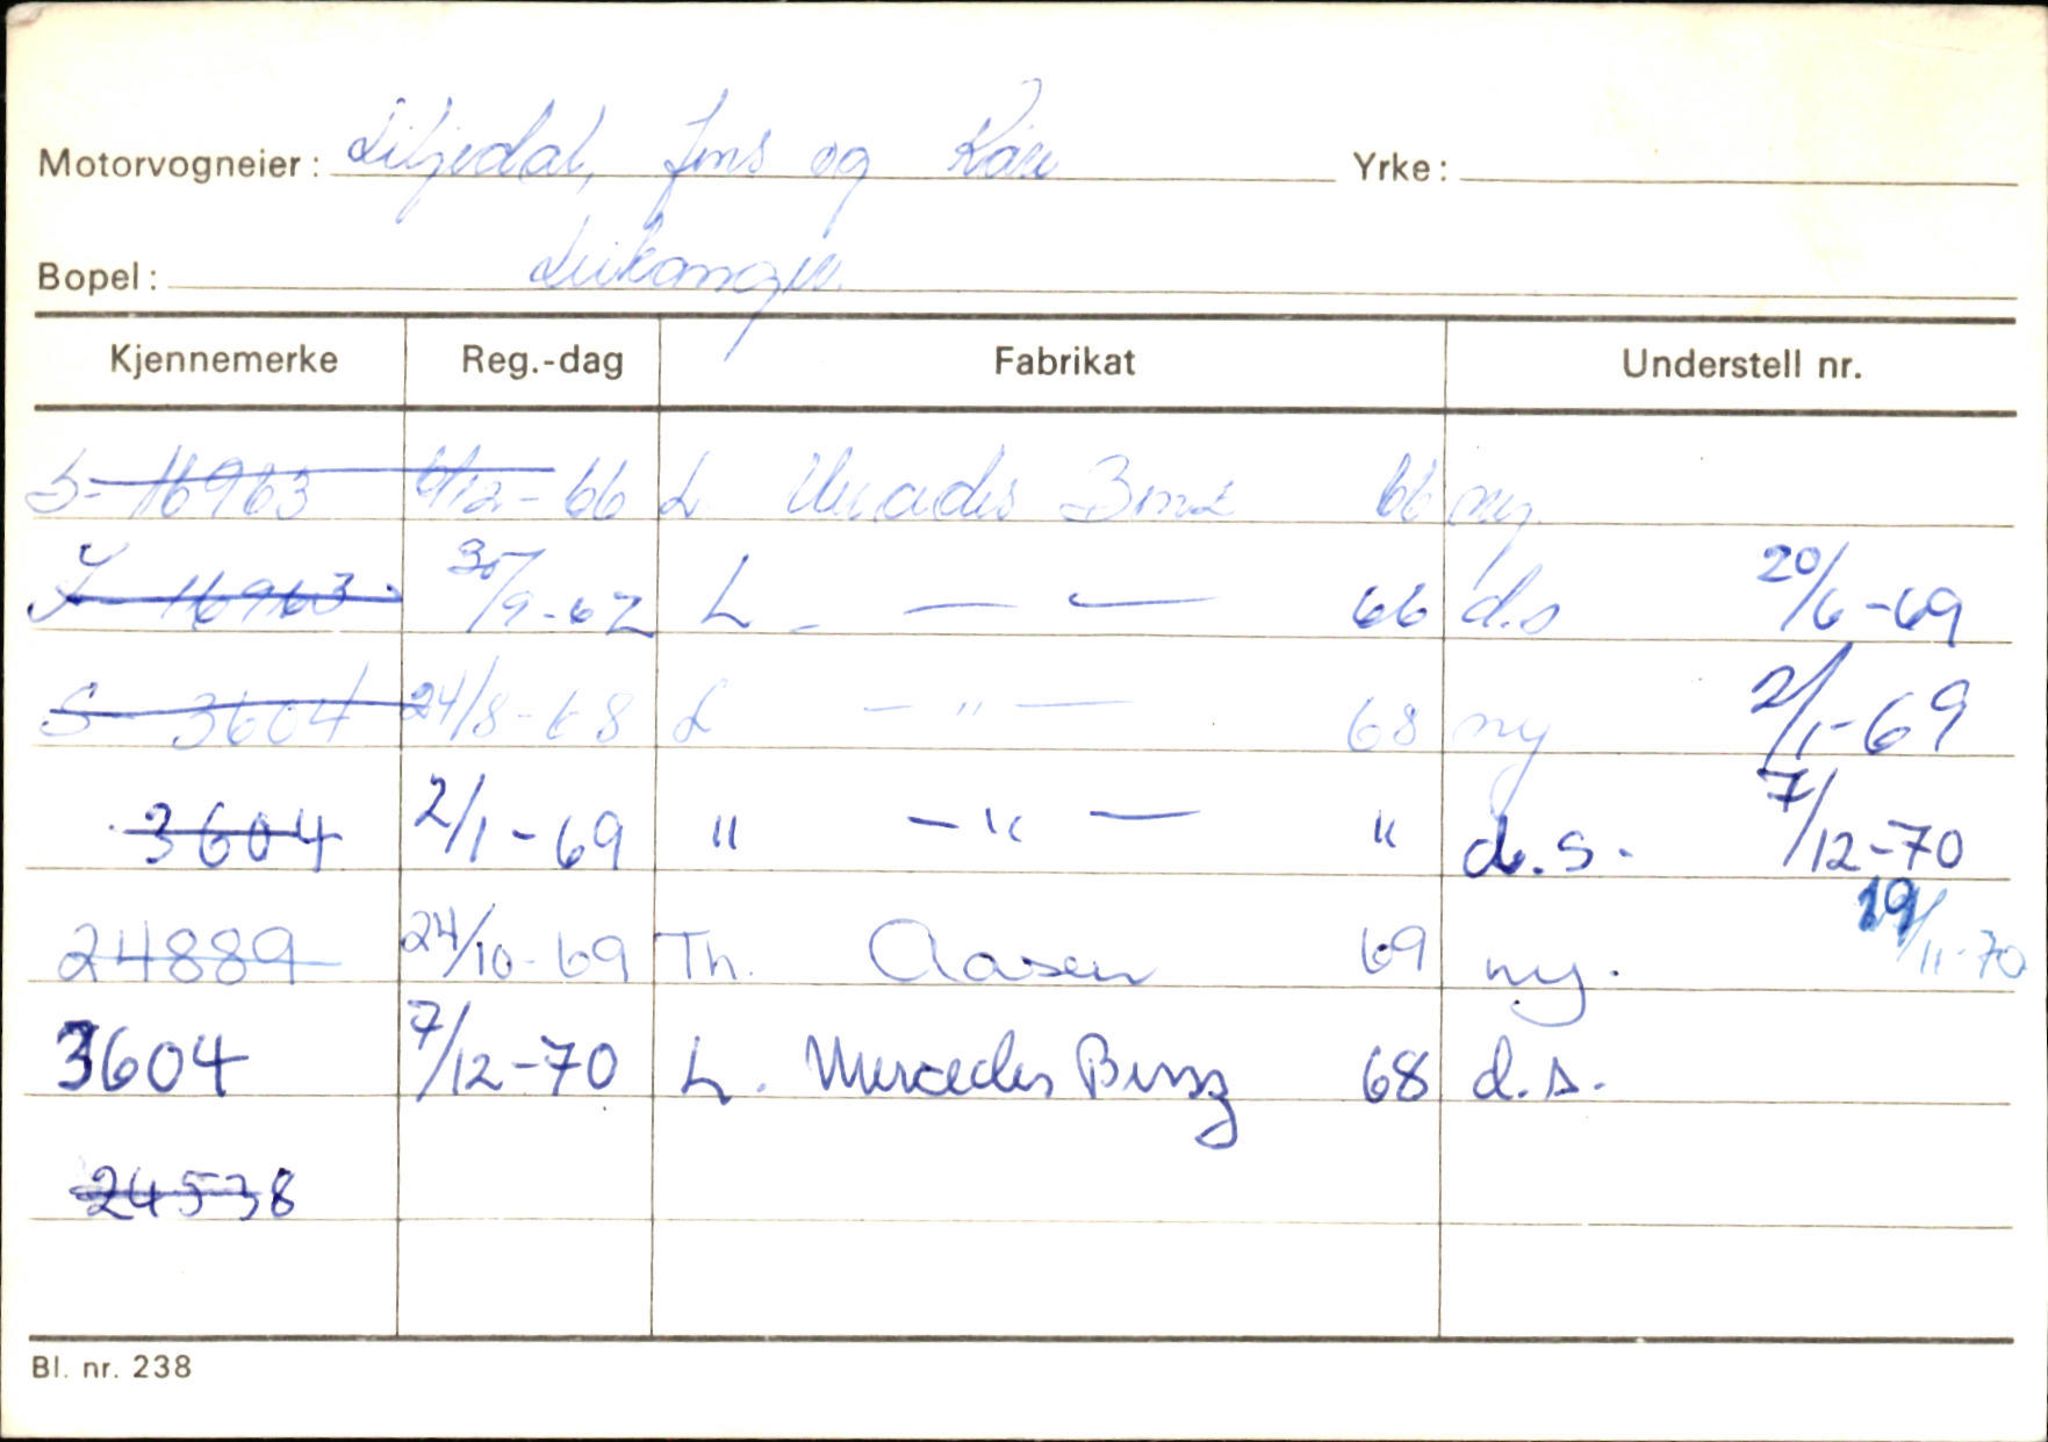 Motorvogneier: Liljedal, Jens og Kåre Yrke:
Bopel: Leikanger.
Kjennemerke Reg.-dag Fabrikat Understell nr.
S- 16963 6/12-66 L Mercedes Benz 66 ny
S- 16963 30/9-67 L - — — 66 d.s 20/6-69
S- 3604 24/8-68 L — " — 68 ny 2/1-69
3604 2/1-69 " — " — " d.s. 7/12-70
24889 24/10-69 Th. Aasen 69 ny. 19/11-70
3604 7/12-70 L. Mercedes Benz 68 d.s.
24538
Bl. nr. 238